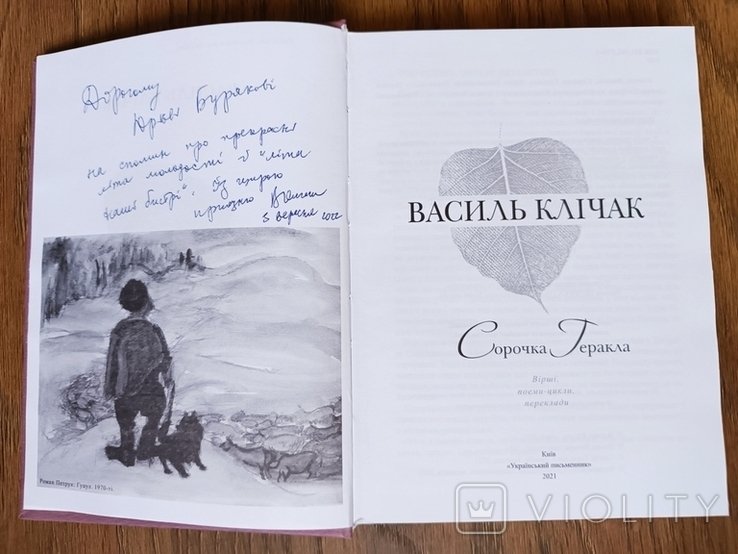 Дорогому
Юрові Бурякові
на спомин про прекрасні
літа молодості й "літа
наші бистрі" із щирою
приязню
3 вересня 2022
Роман Петрук: Гуцул. 1970-ті.
ВАСИЛЬ КЛІЧАК
Сорочка Геракла
Вірші,
поеми-цикли,
переклади
Київ
«Український письменник»
2021
VIOLITY